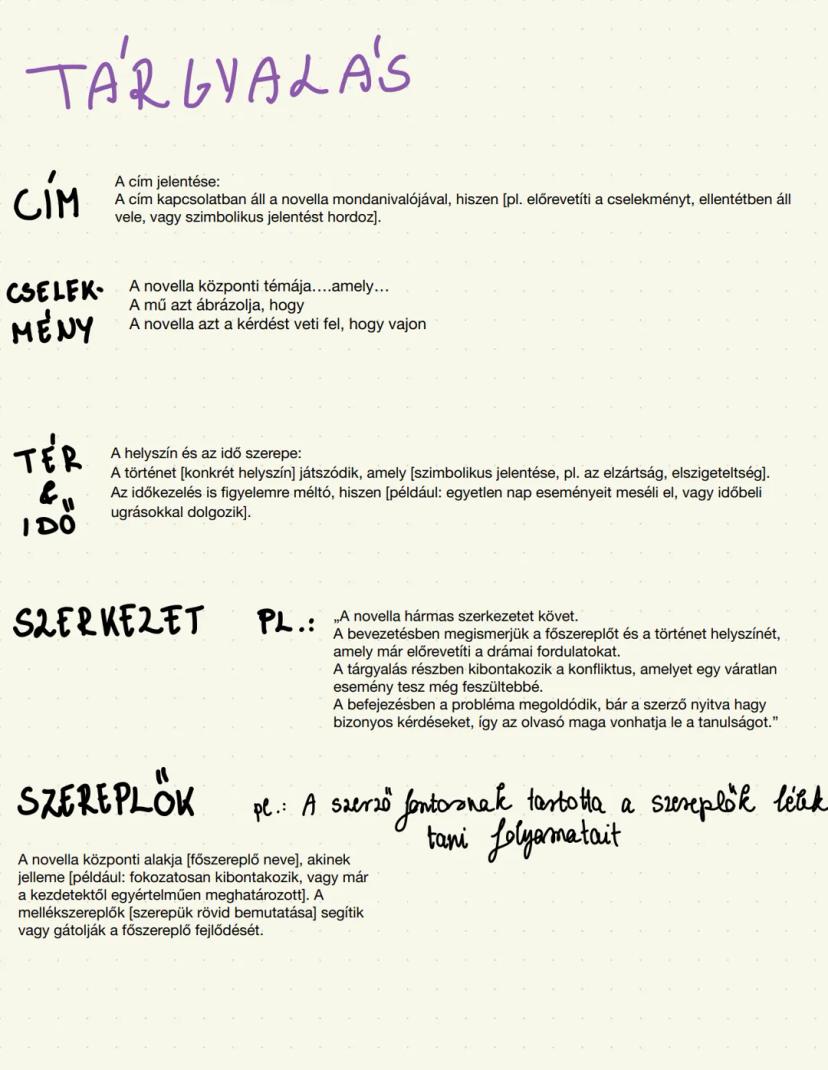 TÁRGYALÁS
CÍM
A cím jelentése:
A cím kapcsolatban áll a novella mondanivalójával, hiszen [pl. előrevetíti a cselekményt, ellentétben áll
vele, vagy szimbolikus jelentést hordoz].
CSELEK-
MÉNY
A novella központi témája….amely…
A mű azt ábrázolja, hogy
A novella azt a kérdést veti fel, hogy vajon
TÉR
&
IDŐ
A helyszín és az idő szerepe:
A történet [konkrét helyszín] játszódik, amely [szimbolikus jelentése, pl. az elzártság, elszigeteltség].
Az időkezelés is figyelemre méltó, hiszen [például: egyetlen nap eseményeit meséli el, vagy időbeli
ugrásokkal dolgozik].
SZERKEZET PL.:
„A novella hármas szerkezetet követ.
A bevezetésben megismerjük a főszereplőt és a történet helyszínét,
amely már előrevetíti a drámai fordulatokat.
A tárgyalás részben kibontakozik a konfliktus, amelyet egy váratlan
esemény tesz még feszültebbé.
A befejezésben a probléma megoldódik, bár a szerző nyitva hagy
bizonyos kérdéseket, így az olvasó maga vonhatja le a tanulságot.”
SZEREPLŐK
pl.: A szerző fontosnak tartotta a szereplők lélek
tani folyamatait
A novella központi alakja [főszereplő neve], akinek
jelleme [például: fokozatosan kibontakozik, vagy már
a kezdetektől egyértelműen meghatározott]. A
mellékszereplők [szerepük rövid bemutatása] segítik
vagy gátolják a főszereplő fejlődését.